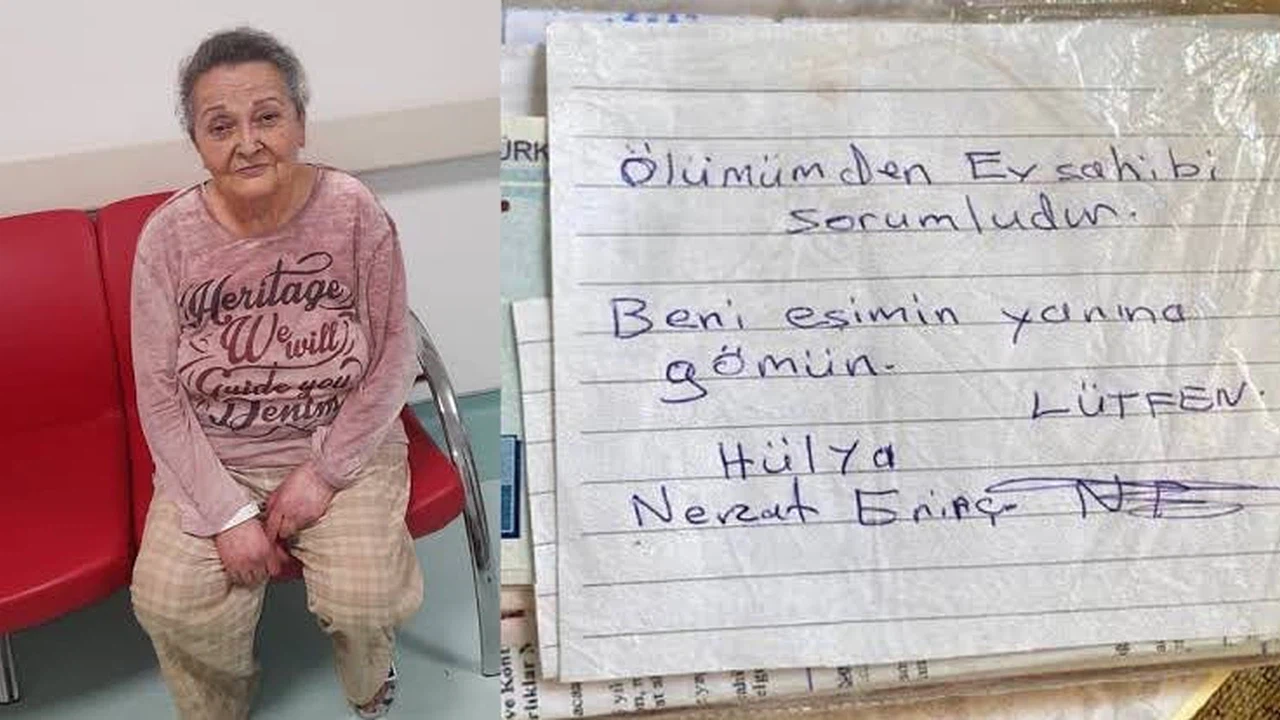 Heritage
We will
Guide you
Denim
ÜRK
Ölümümden Ev sahibi
sorumludur.
Beni eşimin yanına
gömün.
LÜTFEN.
Hülya
Nevzat Erinç
ve Kont